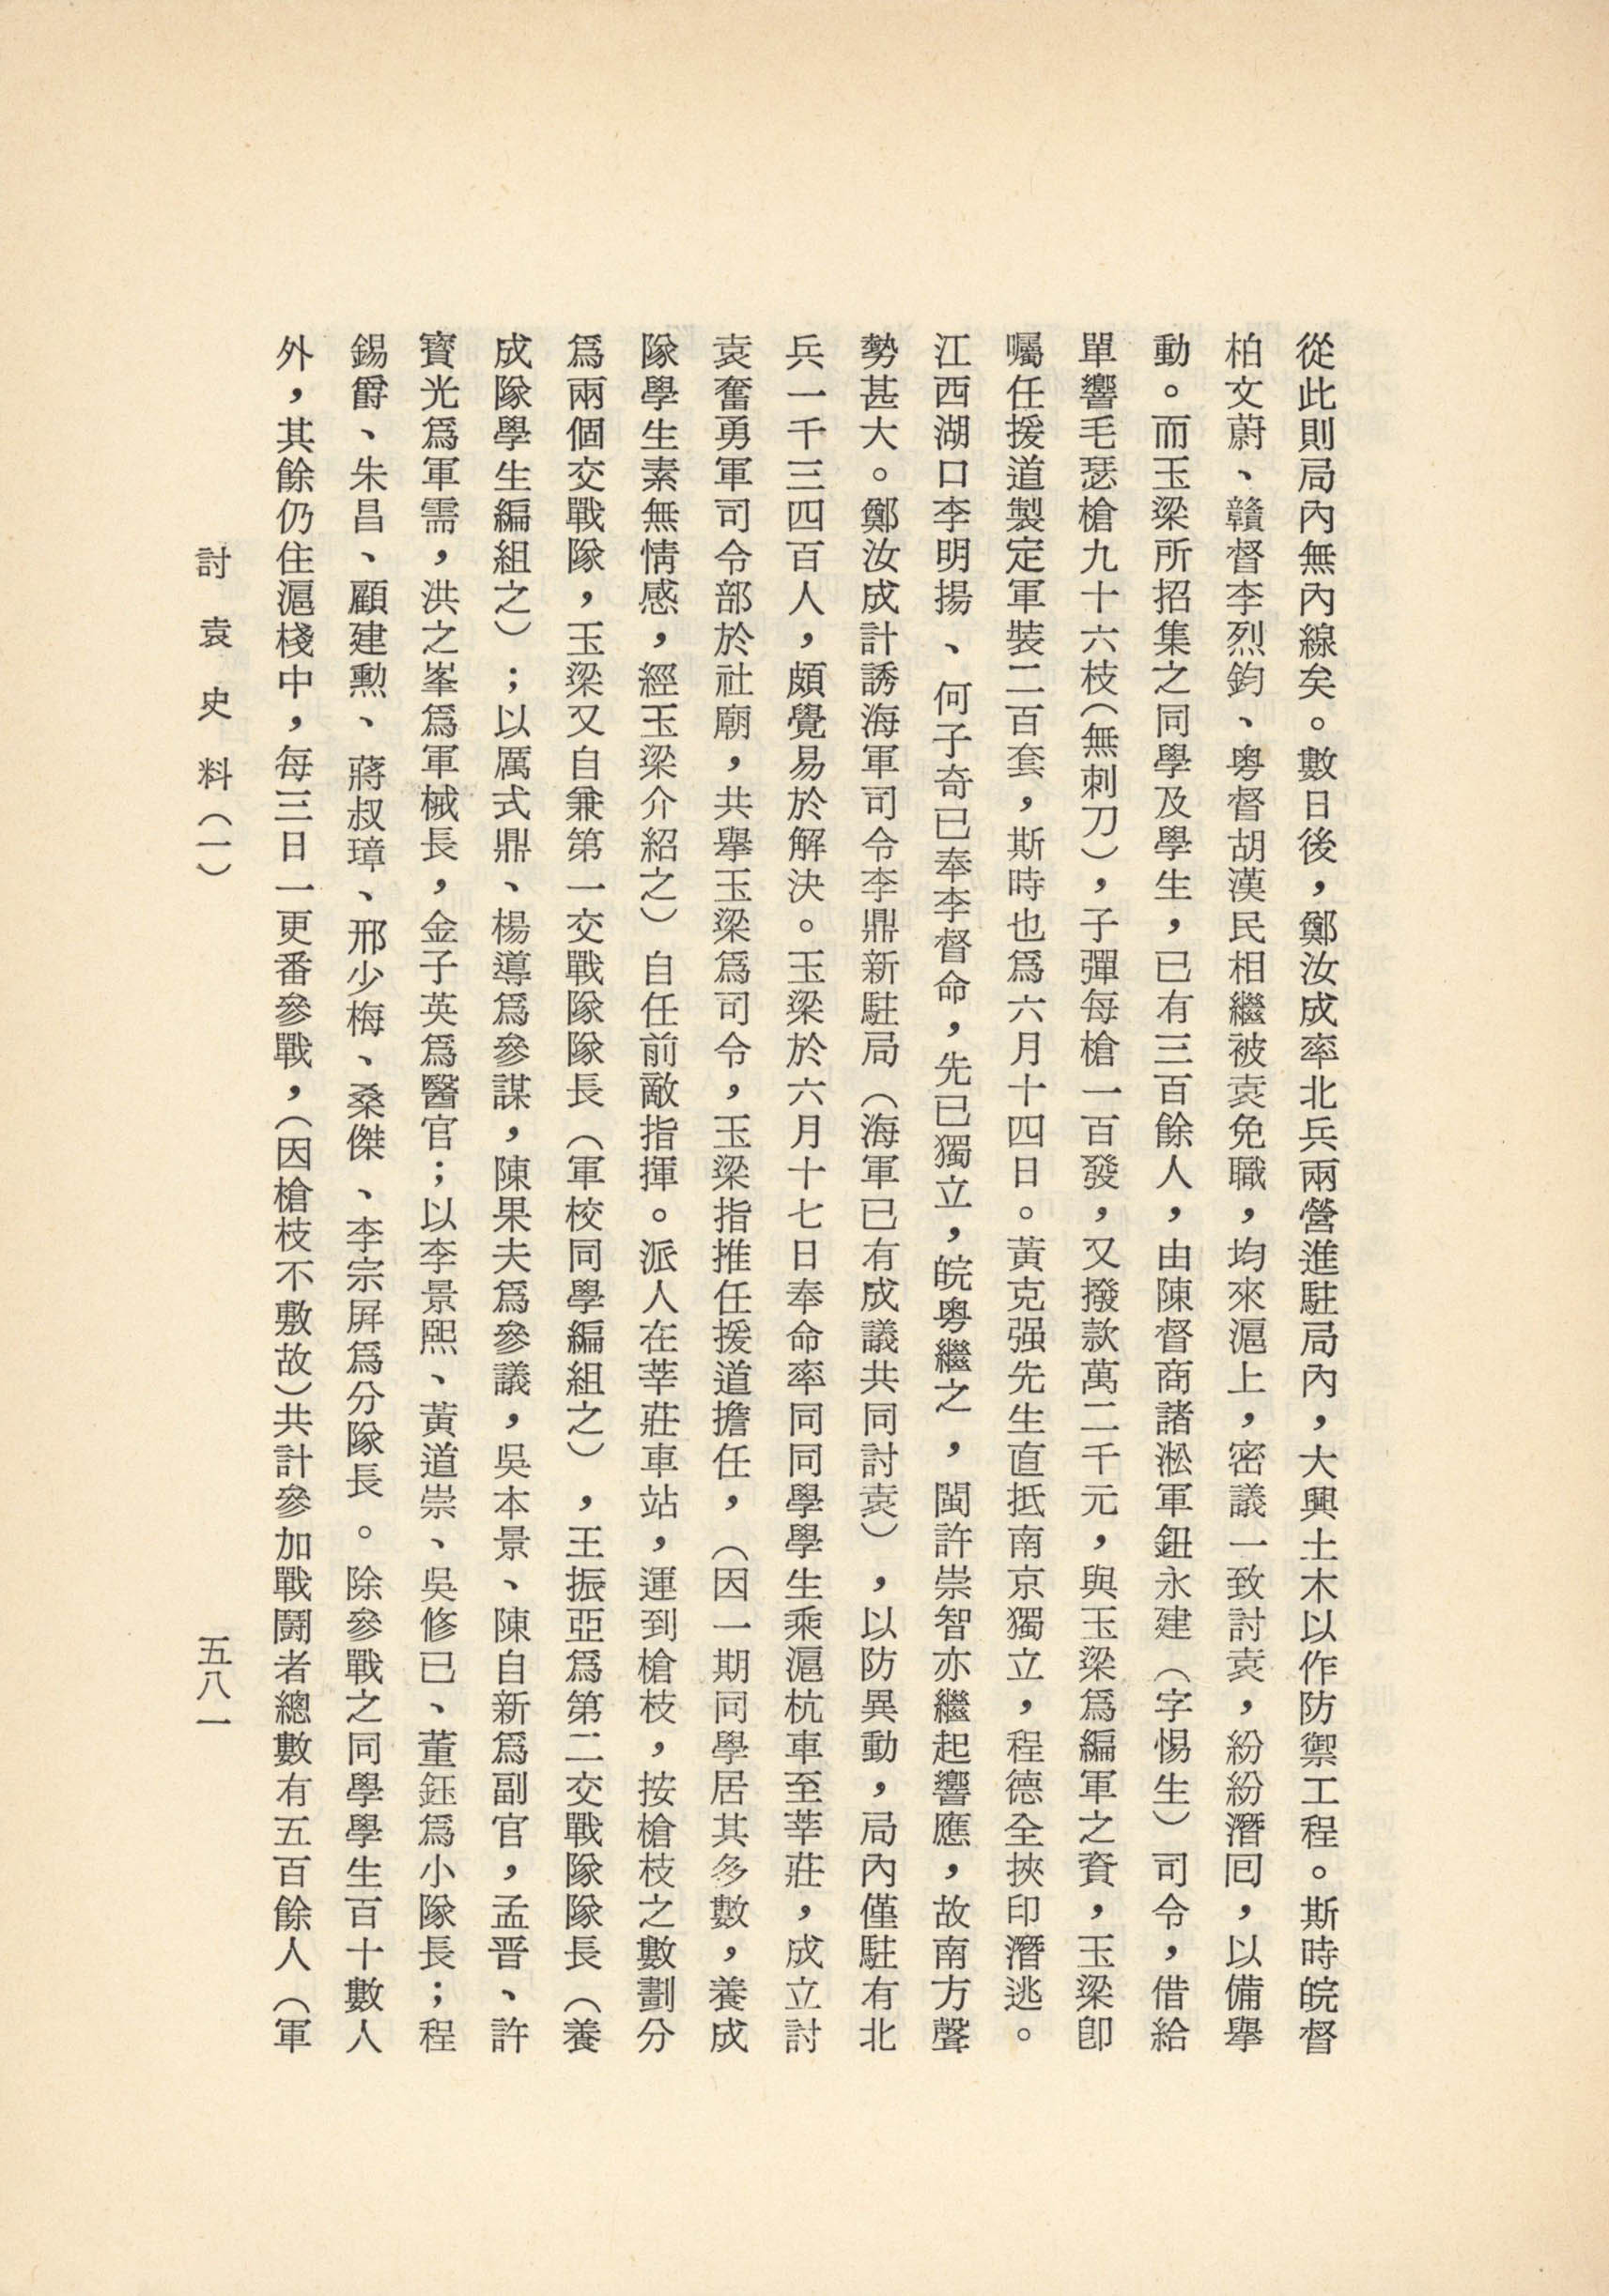 從此則局內無內線矣。數日後，鄭汝成率北兵兩營進駐局內，大興土木以作防禦工程。斯時皖督
柏文蔚、贛督李烈鈞、粤督胡漢民相繼被袁免職，均來滬上，密議一致討袁，紛紛潛囘，以備舉
動。而玉梁所招集之同學及學生，已有三百餘人，由陳督商諸淞軍鈕永建（字惕生）司令，借給
單響毛瑟槍九十六枝（無刺刀），子彈每槍一百發，又撥款萬二千元，與玉梁爲編軍之資，玉梁卽
囑任援道製定軍裝二百套，斯時也爲六月十四日。黃克强先生直抵南京獨立，程德全挾印潛逃。
江西湖口李明揚、何子奇已奉李督命，先已獨立，皖粤繼之，閩許崇智亦繼起響應，故南方聲
勢甚大。鄭汝成計誘海軍司令李鼎新駐局（海軍已有成議共同討袁），以防異動，局內僅駐有北
兵一千三四百人，頗覺易於解決。玉梁於六月十七日奉命率同同學學生乘滬杭車至莘莊，成立討
袁奮勇軍司令部於社廟，共舉玉梁爲司令，玉梁指推任援道擔任，（因一期同學居其多數，養成
隊學生素無情感，經玉梁介紹之）自任前敵指揮。派人在莘莊車站，運到槍枝，按槍枝之數劃分
爲兩個交戰隊，玉梁又自兼第一交戰隊隊長（軍校同學編組之），王振亞爲第二交戰隊隊長（養
成隊學生編組之）；以厲式鼎、楊導爲參謀，陳果夫爲參議，吳本景、陳自新爲副官，孟晋、許
寳光爲軍需，洪之峯爲軍械長，金子英爲醫官；以李景熙、黃道崇、吳修已、董鈺爲小隊長；程
錫爵、朱昌、顧建勲、蔣叔璋、邢少梅、桑傑、李宗屛爲分隊長。除參戰之同學學生百十數人
外，其餘仍住滬棧中，每三日一更番參戰，（因槍枝不敷故）共計參加戰鬪者總數有五百餘人（軍
討袁史料（一）
五八一